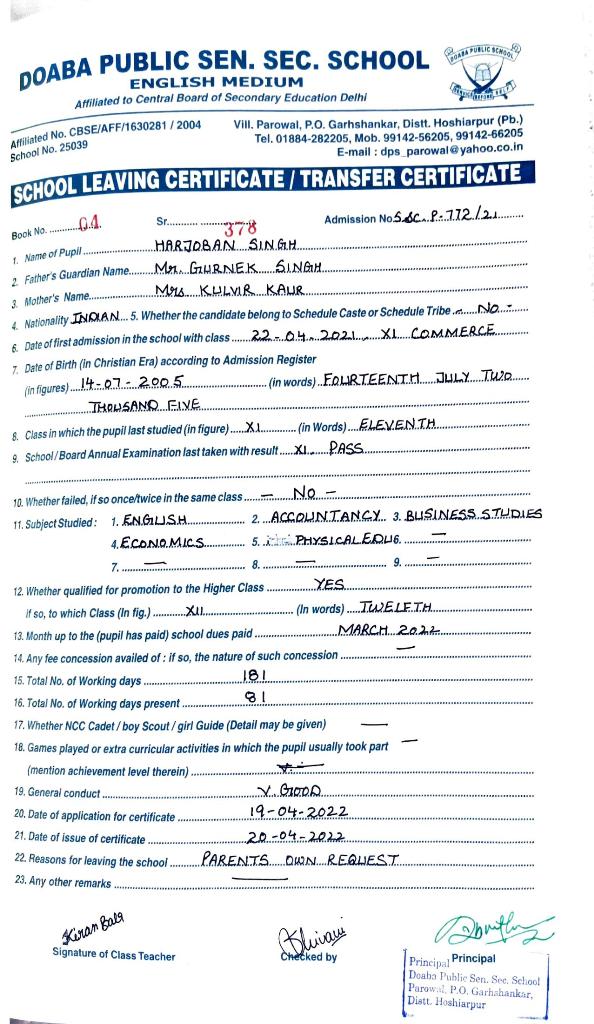 DOABA PUBLIC SEN. SEC. SCHOOL
ENGLISH MEDIUM
Affiliated to Central Board of Secondary Education Delhi
DOABA PUBLIC SCHOOL
Affiliated No. CBSE/AFF/1630281 / 2004
School No. 25039
Vill. Parowal, P.O. Garhshankar, Distt. Hoshiarpur (Pb.)
Tel. 01884-282205, Mob. 99142-56205, 99142-66205
E-mail : dps_parowal@yahoo.co.in
SCHOOL LEAVING CERTIFICATE / TRANSFER CERTIFICATE
Book No. 04 Sr. 378 Admission No S.SC. P-772/21
1. Name of Pupil HARJOBAN SINGH
2. Father's Guardian Name Mr. GURNEK SINGH
3. Mother's Name Mrs KULVIR KAUR
4. Nationality INDIAN 5. Whether the candidate belong to Schedule Caste or Schedule Tribe - NO -
6. Date of first admission in the school with class 22-04-2021, XI COMMERCE
7. Date of Birth (in Christian Era) according to Admission Register
(in figures) 14-07-2005 (in words) FOURTEENTH JULY TWO
THOUSAND FIVE
8. Class in which the pupil last studied (in figure) XI (in Words) ELEVENTH
9. School / Board Annual Examination last taken with result XI, PASS
10. Whether failed, if so once/twice in the same class - NO -
11. Subject Studied : 1. ENGLISH 2. ACCOUNTANCY 3. BUSINESS STUDIES
4. ECONOMICS 5. PHYSICAL EDU 6. —
7. — 8. — 9. —
12. Whether qualified for promotion to the Higher Class YES
if so, to which Class (In fig.) XII (In words) TWELETH
13. Month up to the (pupil has paid) school dues paid MARCH 2022
14. Any fee concession availed of : if so, the nature of such concession —
15. Total No. of Working days 181
16. Total No. of Working days present 81
17. Whether NCC Cadet / boy Scout / girl Guide (Detail may be given) —
18. Games played or extra curricular activities in which the pupil usually took part —
(mention achievement level therein)
19. General conduct V. GOOD
20. Date of application for certificate 19-04-2022
21. Date of issue of certificate 20-04-2022
22. Reasons for leaving the school PARENTS OWN REQUEST
23. Any other remarks —
Kiran Bala
Signature of Class Teacher
Shivani
Checked by
Principal
Principal
Doaba Public Sen. Sec. School
Parowal, P.O. Garhshankar,
Distt. Hoshiarpur